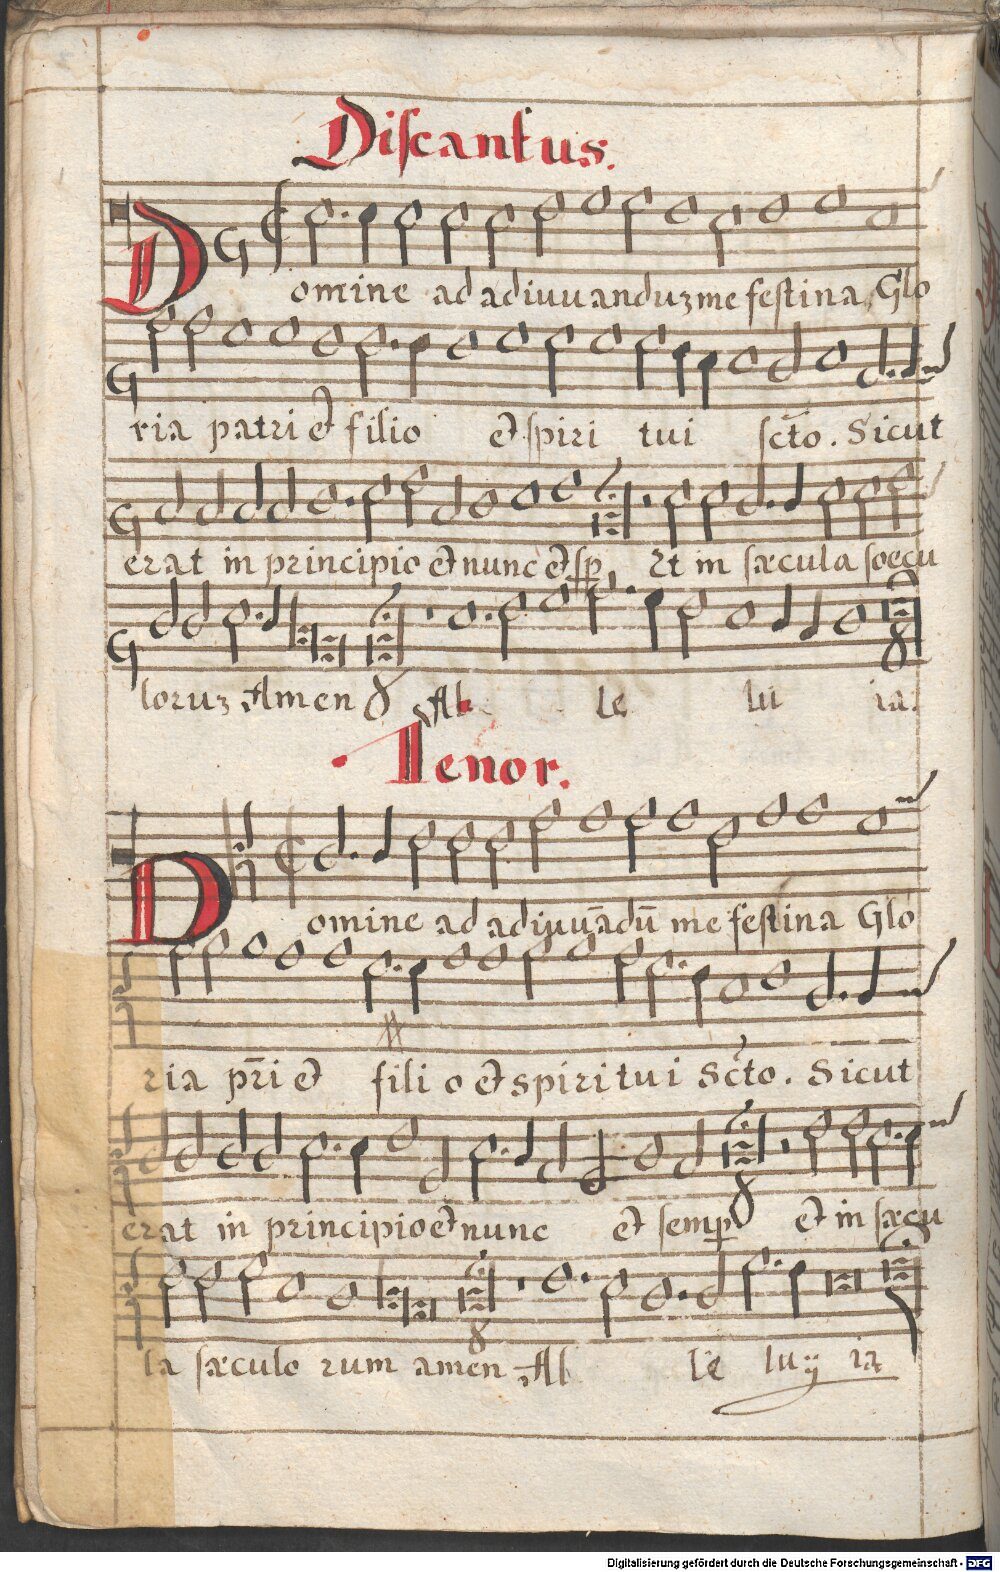 Discantus.
Domine ad adiuuanduz me festina Glo
ria patri et filio et spiri tui scto. Sicut
erat in principio et nunc et sp et in sæcula soecu
loruz Amen Al le lu ia:
Tenor.
Domine ad adiuuādū me festina Glo
ria pri et fili o et spiritui Scto. Sicut
erat in principio et nunc et semp et in sæcu
la sæculo rum amen Al le lu ij ia
Digitalisierung gefördert durch die Deutsche Forschungsgemeinschaft - DFG